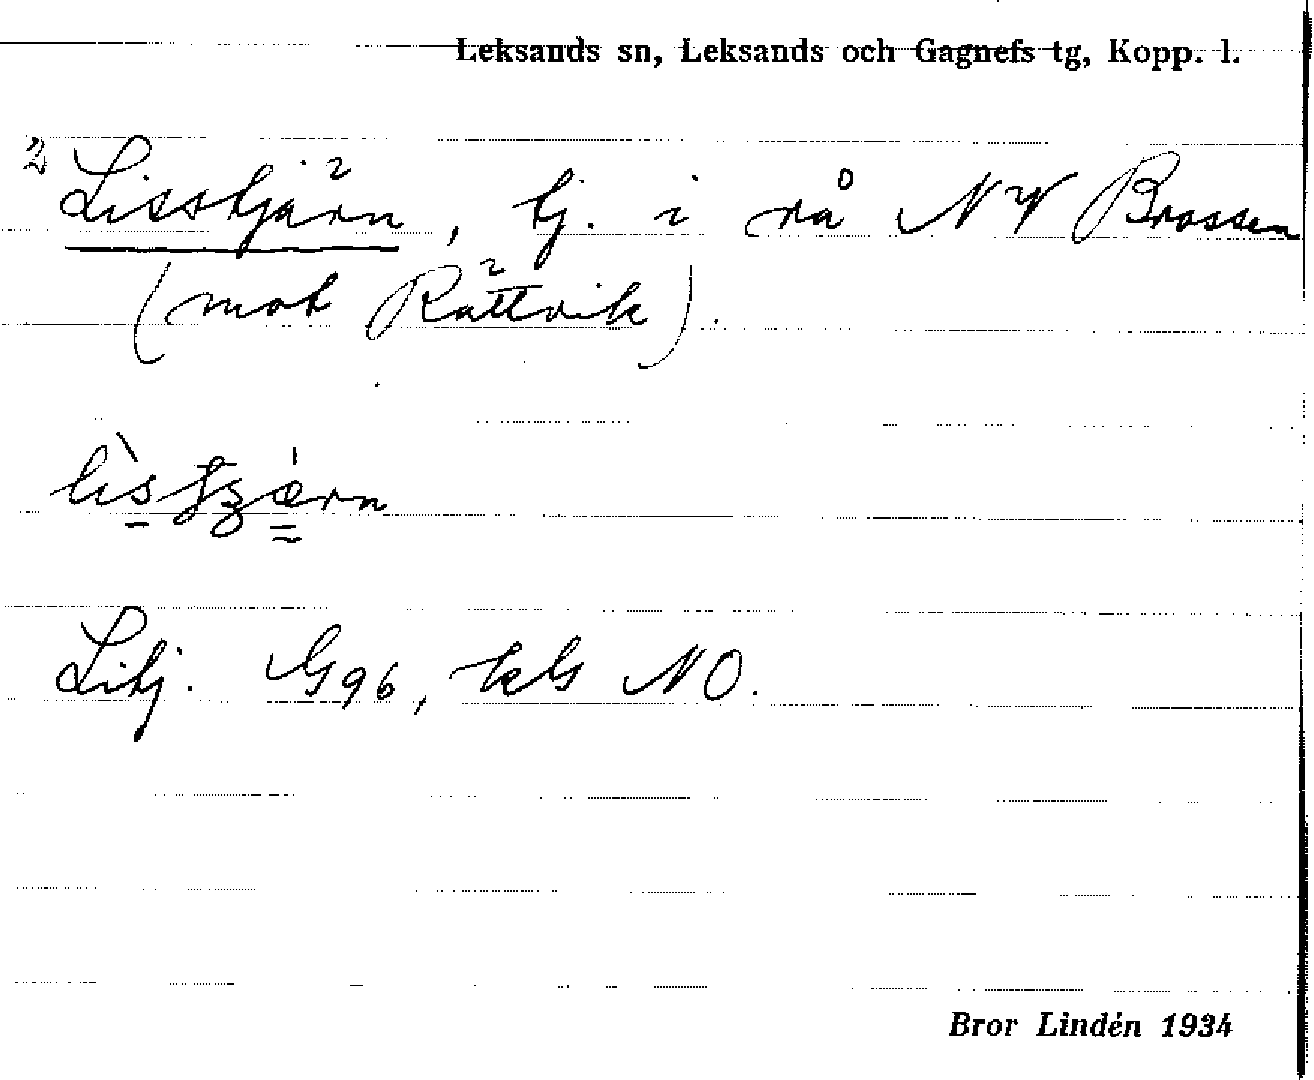 Leksands sn, Leksands och Gagnefs tg, Kopp. l.
2 Lisstjärn, tj. i rå NV Brossen
(mot Rättvik).
Litj. G96, NO.
Bror Lindén 1934